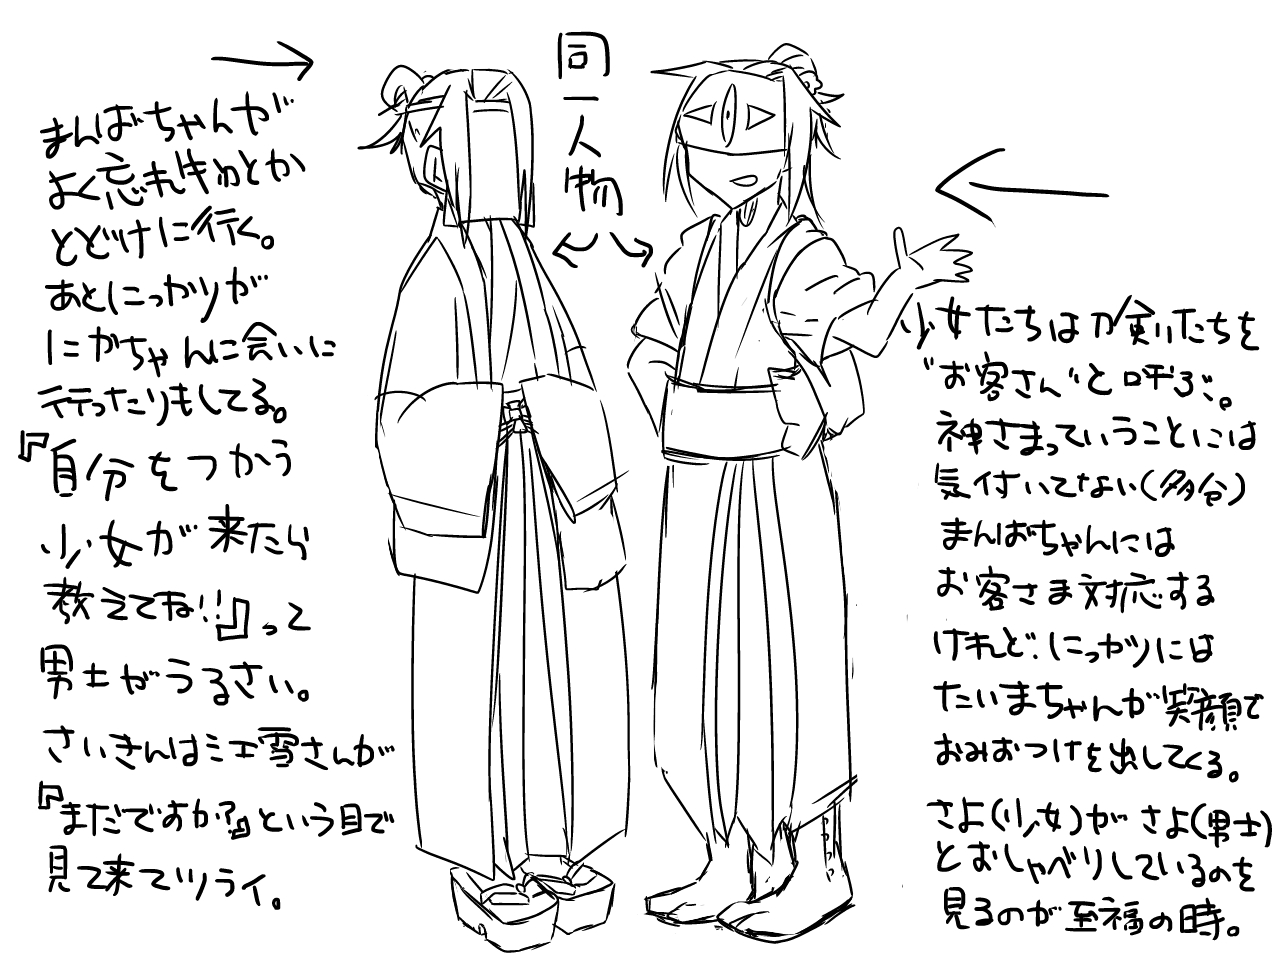 同一人物
まんばちゃんが
よく忘れ物とか
とどけに行く。
あとにっかりが
にかちゃんに会いに
行ったりもしてる。
『自分をつかう
少女が来たら
教えてね!!』って
男士がうるさい。
さいきんは江雪さんが
『まだですか?』という目で
見て来てツライ。
少女たちは刀剣たちを
"お客さん"と呼ぶ。
神さまっていうことには
気付いてない(多分)
まんばちゃんには
お客さま対応する
けれど、にっかりには
たいまちゃんが笑顔で
おみおつけを出してくる。
さよ(少女)が さよ(男士)
とおしゃべりしているのを
見るのが至福の時。